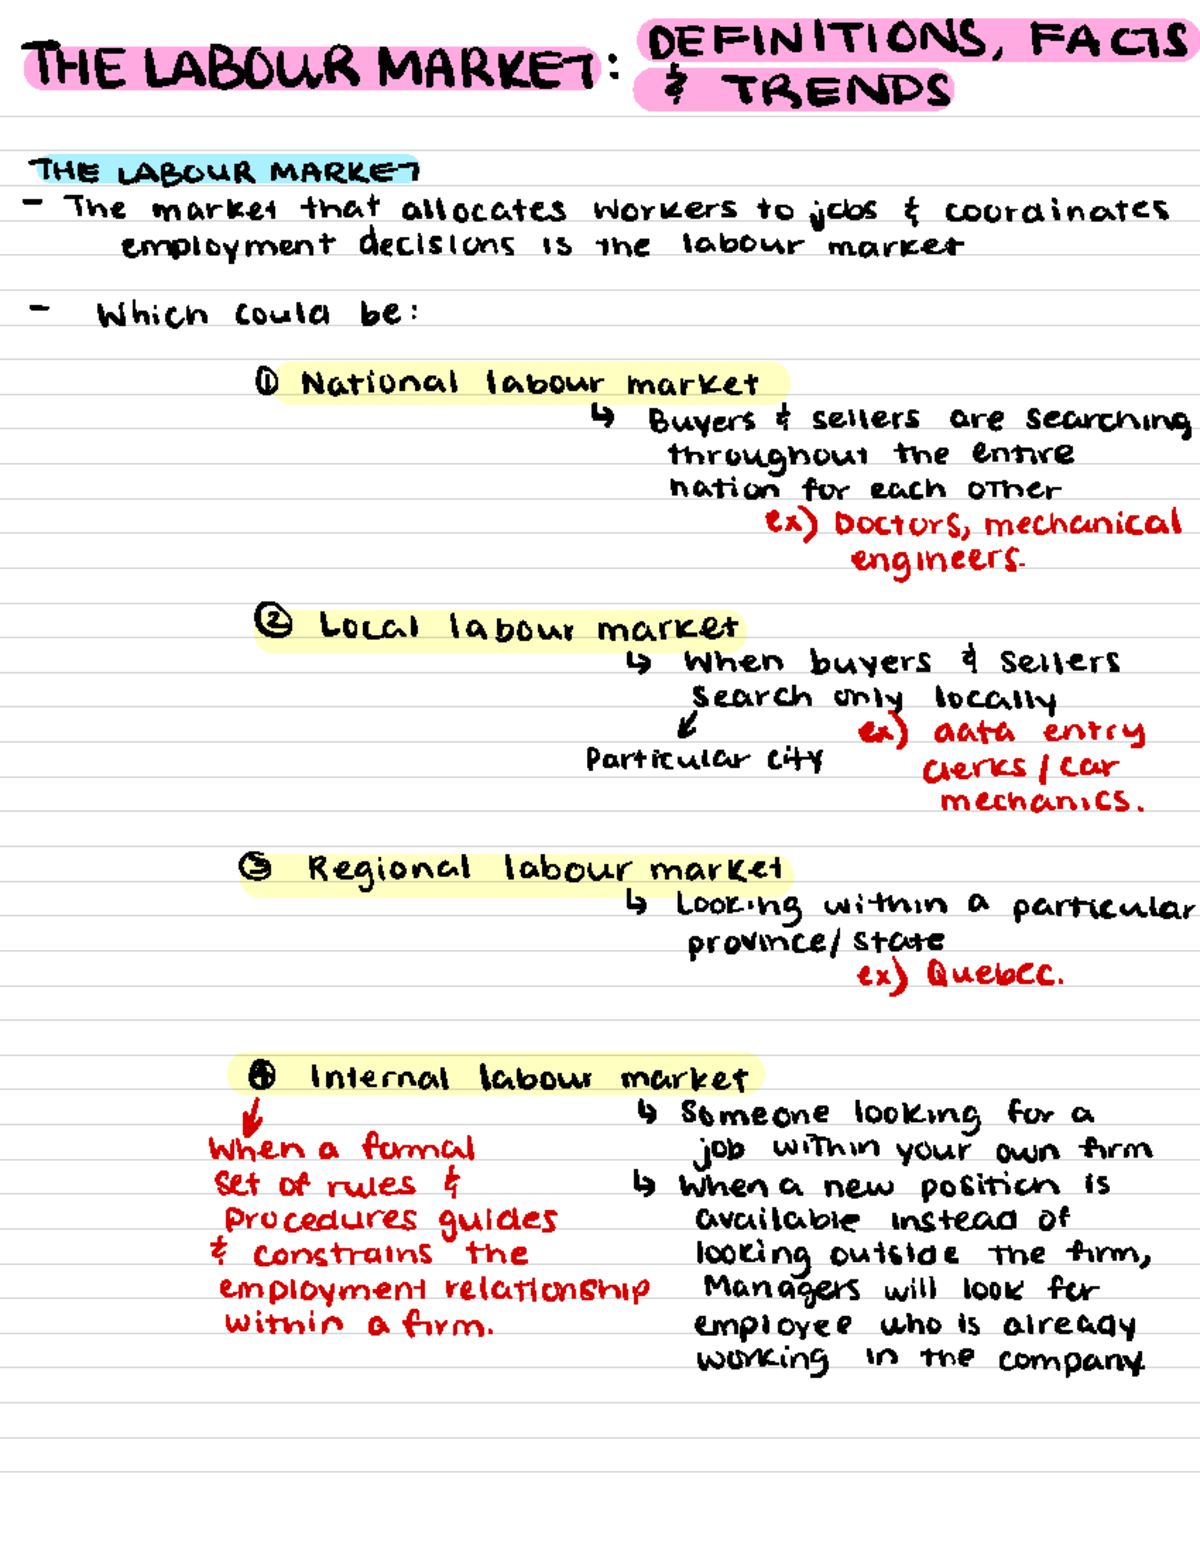 THE LABOUR MARKET: DEFINITIONS, FACTS
& TRENDS
THE LABOUR MARKET
- The market that allocates workers to jobs & coordinates
employment decisions is the labour market
- Which could be:
① National labour market
↳ Buyers & sellers are searching
throughout the entire
nation for each other
ex) Doctors, mechanical
engineers.
② Local labour market
↳ When buyers & sellers
search only locally
↙
Particular city
ex) data entry
clerks / car
mechanics.
③ Regional labour market
↳ Looking within a particular
province/ state
ex) Quebec.
④ Internal labour market
↙
When a formal
set of rules &
procedures guides
& constrains the
employment relationship
within a firm.
↳ Someone looking for a
job within your own firm
↳ When a new position is
available instead of
looking outside the firm,
Managers will look for
employee who is already
working in the company